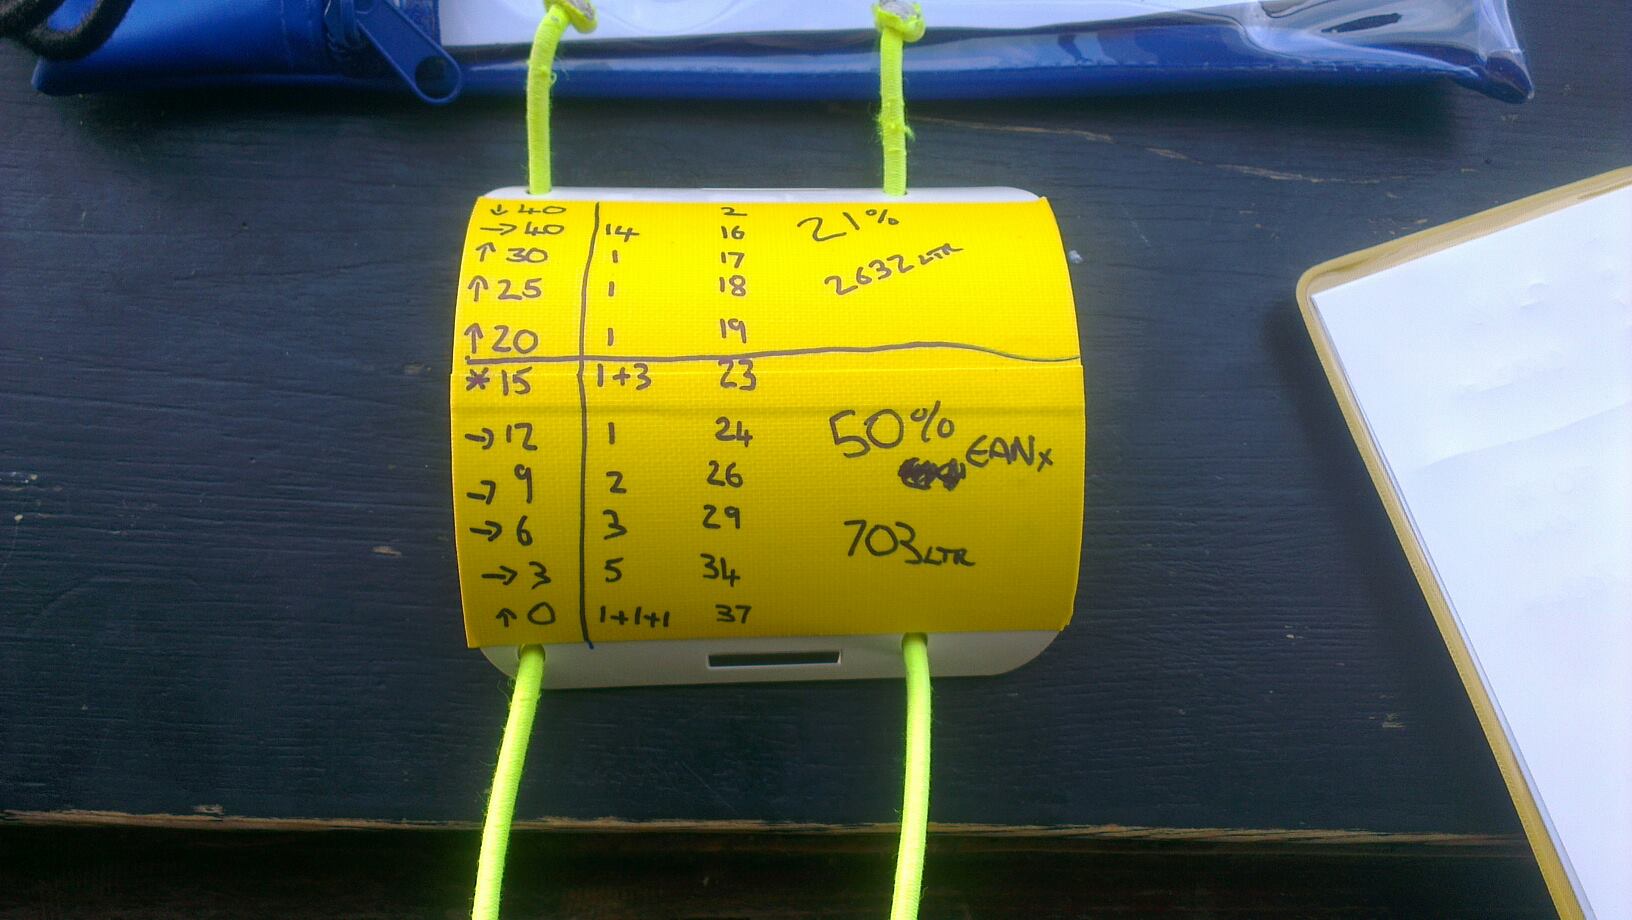 ↓ 40 2
→ 40 14 16 21%
↑ 30 1 17 2632 LTR
↑ 25 1 18
↑ 20 1 19
* 15 1+3 23
→ 12 1 24 50%
EANx
→ 9 2 26
→ 6 3 29 703 LTR
→ 3 5 34
↑ 0 1+1+1 37